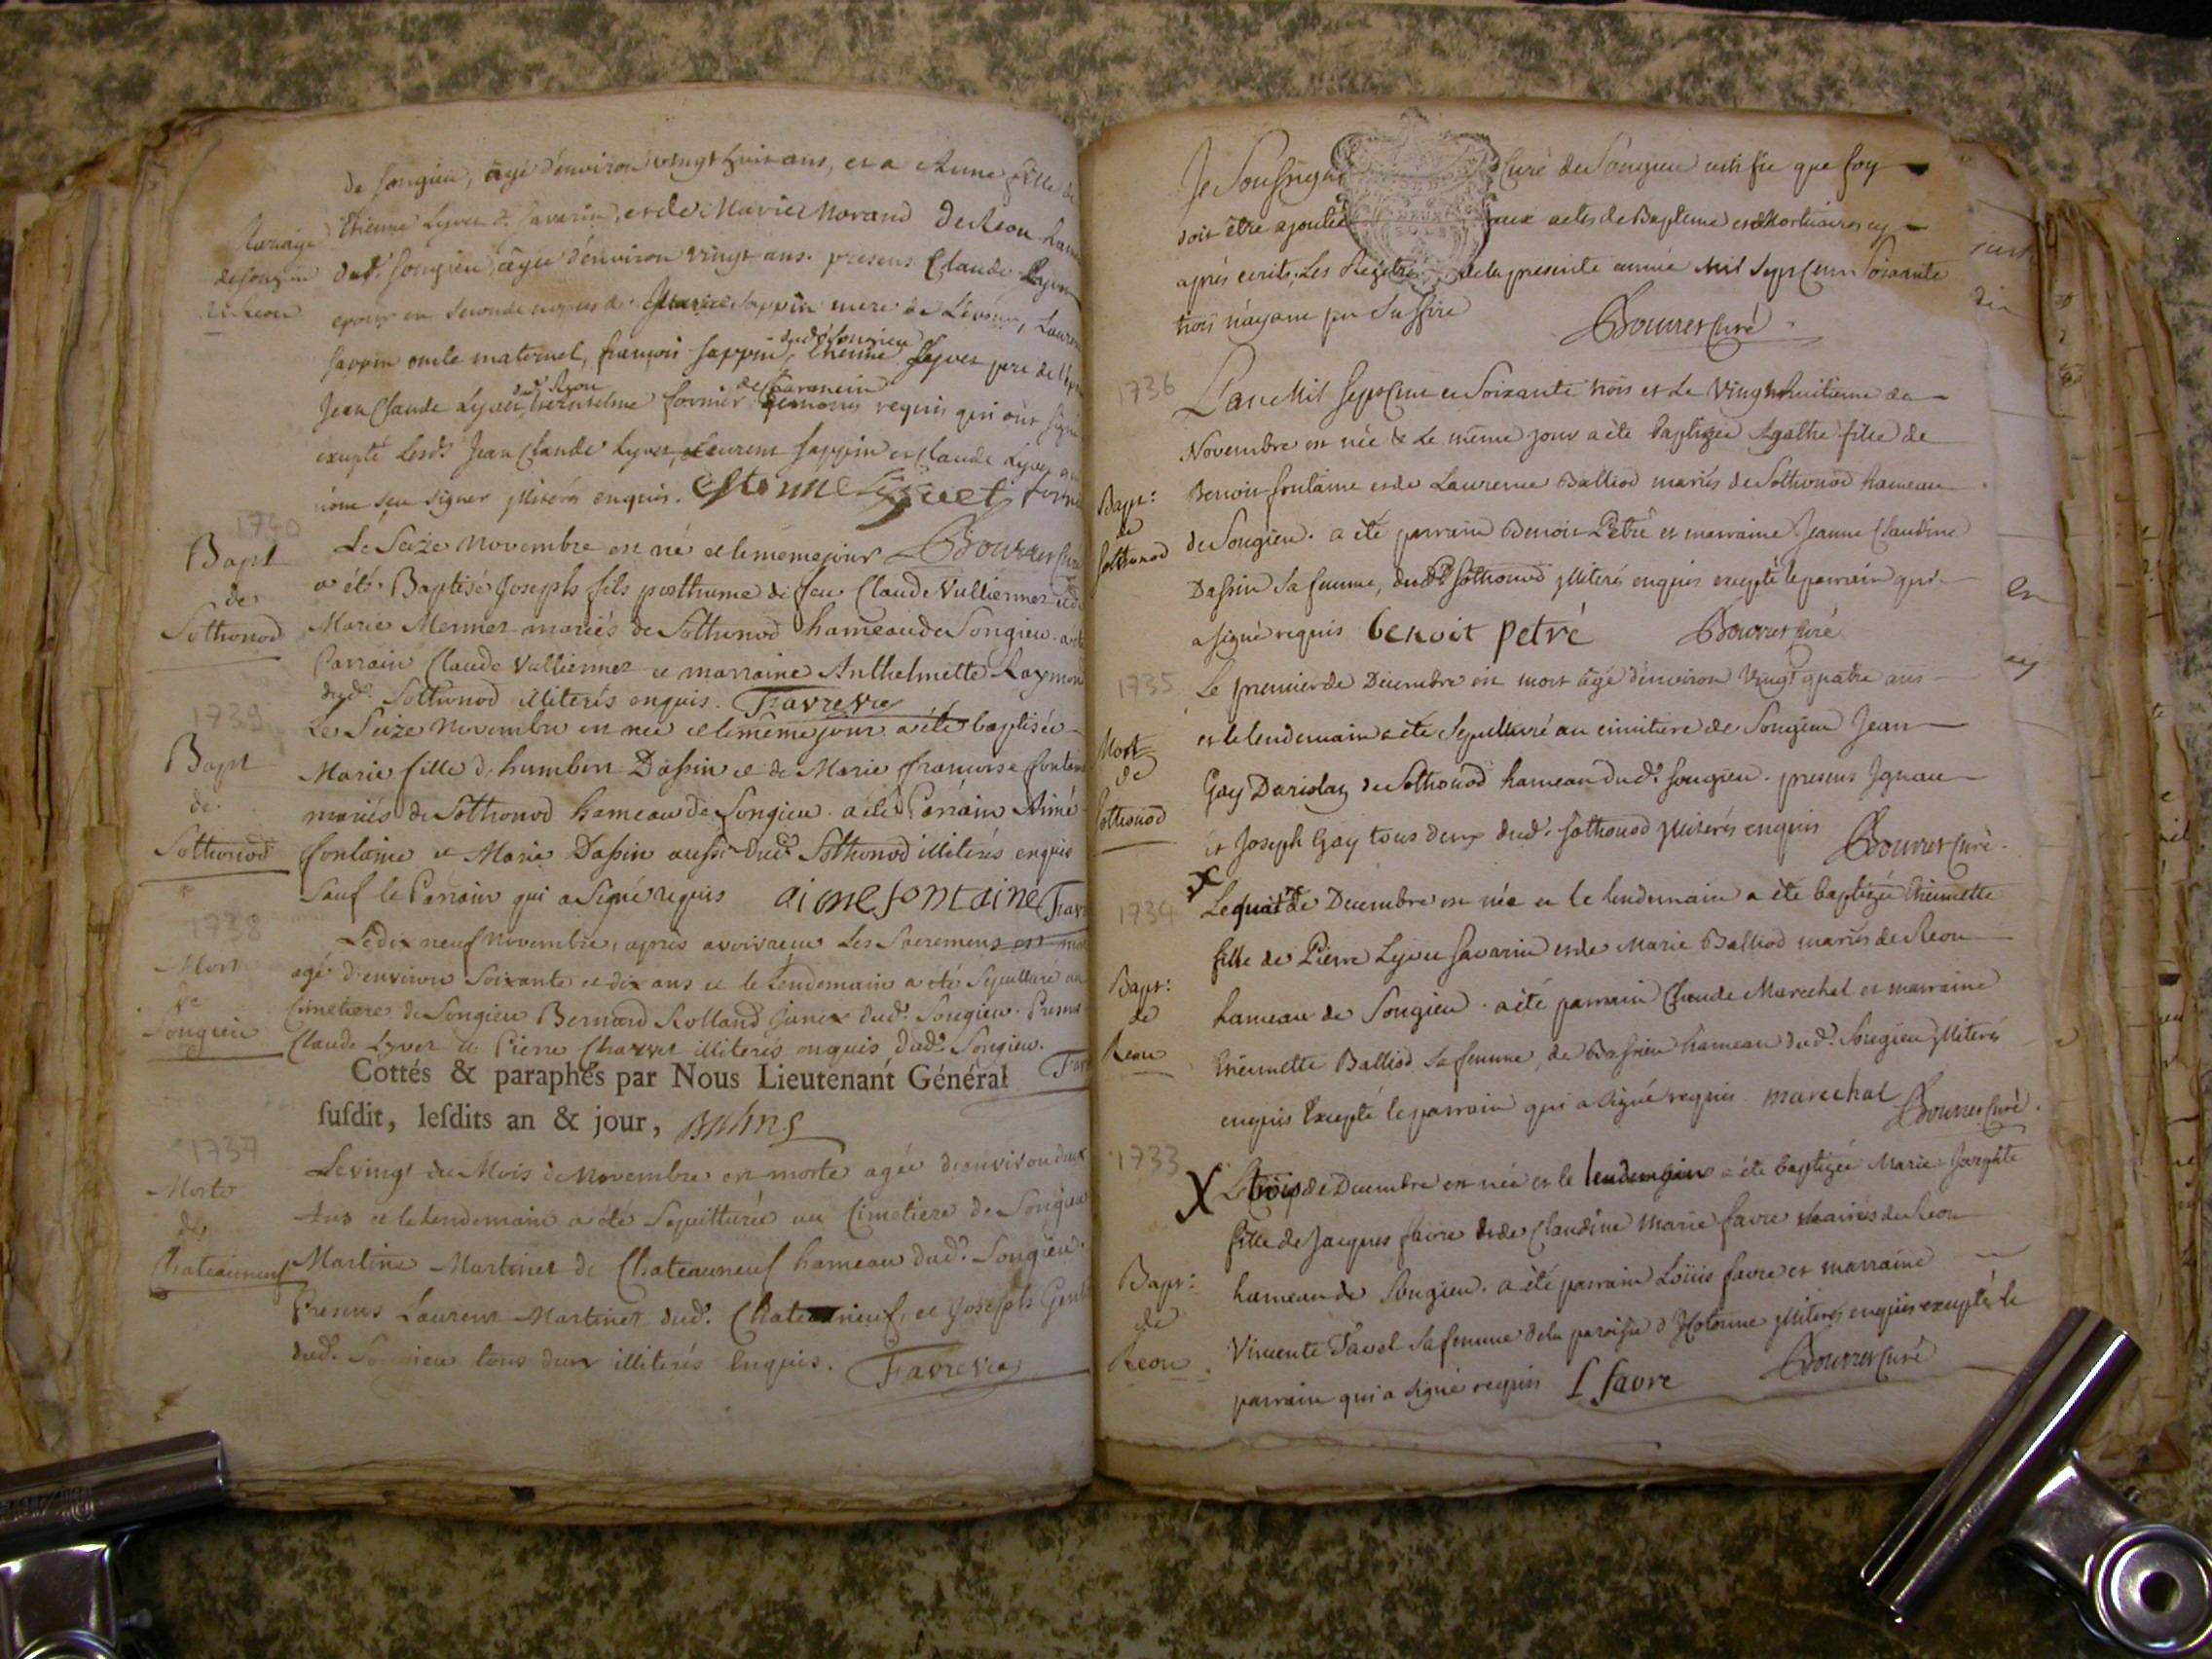 de Songieu, agé d'environ vingt huit ans, et a Anne fille de
Mariage
de Songieu
Etienne Lyvet d. Savarin, et de Marie Morand de Reon
dud. Songieu agée d'environ vingt ans. presens Claude Lyvet
epoux en seconde noces de Marie Sappin mere de L'époux, Laurent
Sappin oncle maternel, françois Sappin, dud. Songieu Etienne Lyvet pere de
Jean Claude Lyvet dud. Reon Anthelme fornier de requis qui ont signé
excepté Lesd. Jean Claude Lyvet, Laurent Sappin et Claude Lyvet qui
n'ont sçu signer illiterés enquis. Etienne Lyvet
1740
Bapt
de
Sothonod
Le Seize Novembre est né et le meme jour Bourret Curé
a été Baptisé Joseph fils posthume de feu Claude Vulliermet et de
Marie Mermet mariés de Sothonod hameau de Songieu. a été
Parrain Claude Vulliermet et marraine Anthelmette Raymond
dud. Sothonod illiterés enquis. Favre vic
1739
Bapt
de
Sothonod
Le Seize Novembre est née et le même jour a été baptisée
Marie fille d'humbert Dassin et de Marie françoise fontaine
mariés de Sothonod hameau de Songieu. a été Parrain Aimé
fontaine et Marie Dassin aussi dud. Sothonod illiterés enquis
Sauf le Parrain qui a Signé requis aime fontaine
1738
Mort
de
Songieu
Le dix neuf Novembre, après avoir reçu Les Sacremens est mort
agé d'environ Soixante et dix ans et le Lendemain a été Sepulturé au
Cimetiere de Songieu Bernard Rolland Junet dud. Songieu. Presens
Claude Lyvet et Pierre Charvet illiterés enquis dud. Songieu.
Cottés & paraphés par Nous Lieutenant Général
ſuſdit, leſdits an & jour,
1737
Morte
de
Chateauneuf
Le vingt du Mois de Novembre est morte agée d'environ deux
Ans et le lendemain a été Sepulturée au Cimetiere de Songieu
Martine Martinet de Chateauneuf hameau dud. Songieu.
Presens Laurent Martinet dud. Chateauneuf, et Joseph
dud. Songieu tous deux illiterés Enquis. Favre vic
Je Soussigné Curé de Songieu certifie que foy
doit être ajoutée aux actes de Bapteme et Mortuaires cy
après ecrits, Les Registres de la presente année Mil Sept Cent Soixante
trois n'ayant pu Suffire
Bourret Curé
1736
L'an Mil Sept Cent et Soixante trois et Le Vingt huitieme de
Novembre est née & Le même jour a été baptizée Agathe fille de
Bapt:
de
Sothonod
Benoit fontaine et de Laurence Balliod mariés de Sothonod hameau
de Songieu. a été parrain Benoit Petré et marraine Jeanne Claudine
Dassin Sa femme, dud. Sothonod illiterés enquis excepté le parrain qui
a signé requis benoit petré Bourret Curé
1735
Mort
de
Sothonod
Le premier de Decembre est mort agé d'environ Vingt quatre ans
et le lendemain a été Sepulturé au cimitiere de Songieu Jean
Gay Dariolaz de Sothonod hameau dud. Songieu. presens Ignace
et Joseph Gay tous deux dud. Sothonod illiterés enquis Bourret Curé.
x
1734
Le quatre de Decembre est née et le lendemain a été baptizée Etiennette
fille de Pierre Lyvet Savarin et de Marie Balliod mariés de Reon
Bapt:
de
Reon
hameau de Songieu. a été parrain Claude Marechal et marraine
Etiennette Balliod Sa femme, de Bassieu hameau dud. Songieu illiterés
enquis Excepté le parrain qui a Signé requis. marechal Bourret Curé.
1733
X
Le trois de Decembre est née et le lendemain a été baptizée Marie Josephte
fille de Jacques favre et de Claudine Marie favre mariés de Reon
Bapt:
de
Reon.
hameau de Songieu. a été parrain Loüis favre et marraine
Vincente Favel Sa femme de la paroisse d'Hotonne illiterés enquis excepté le
parrain qui a Signé requis L favre Bourret Curé